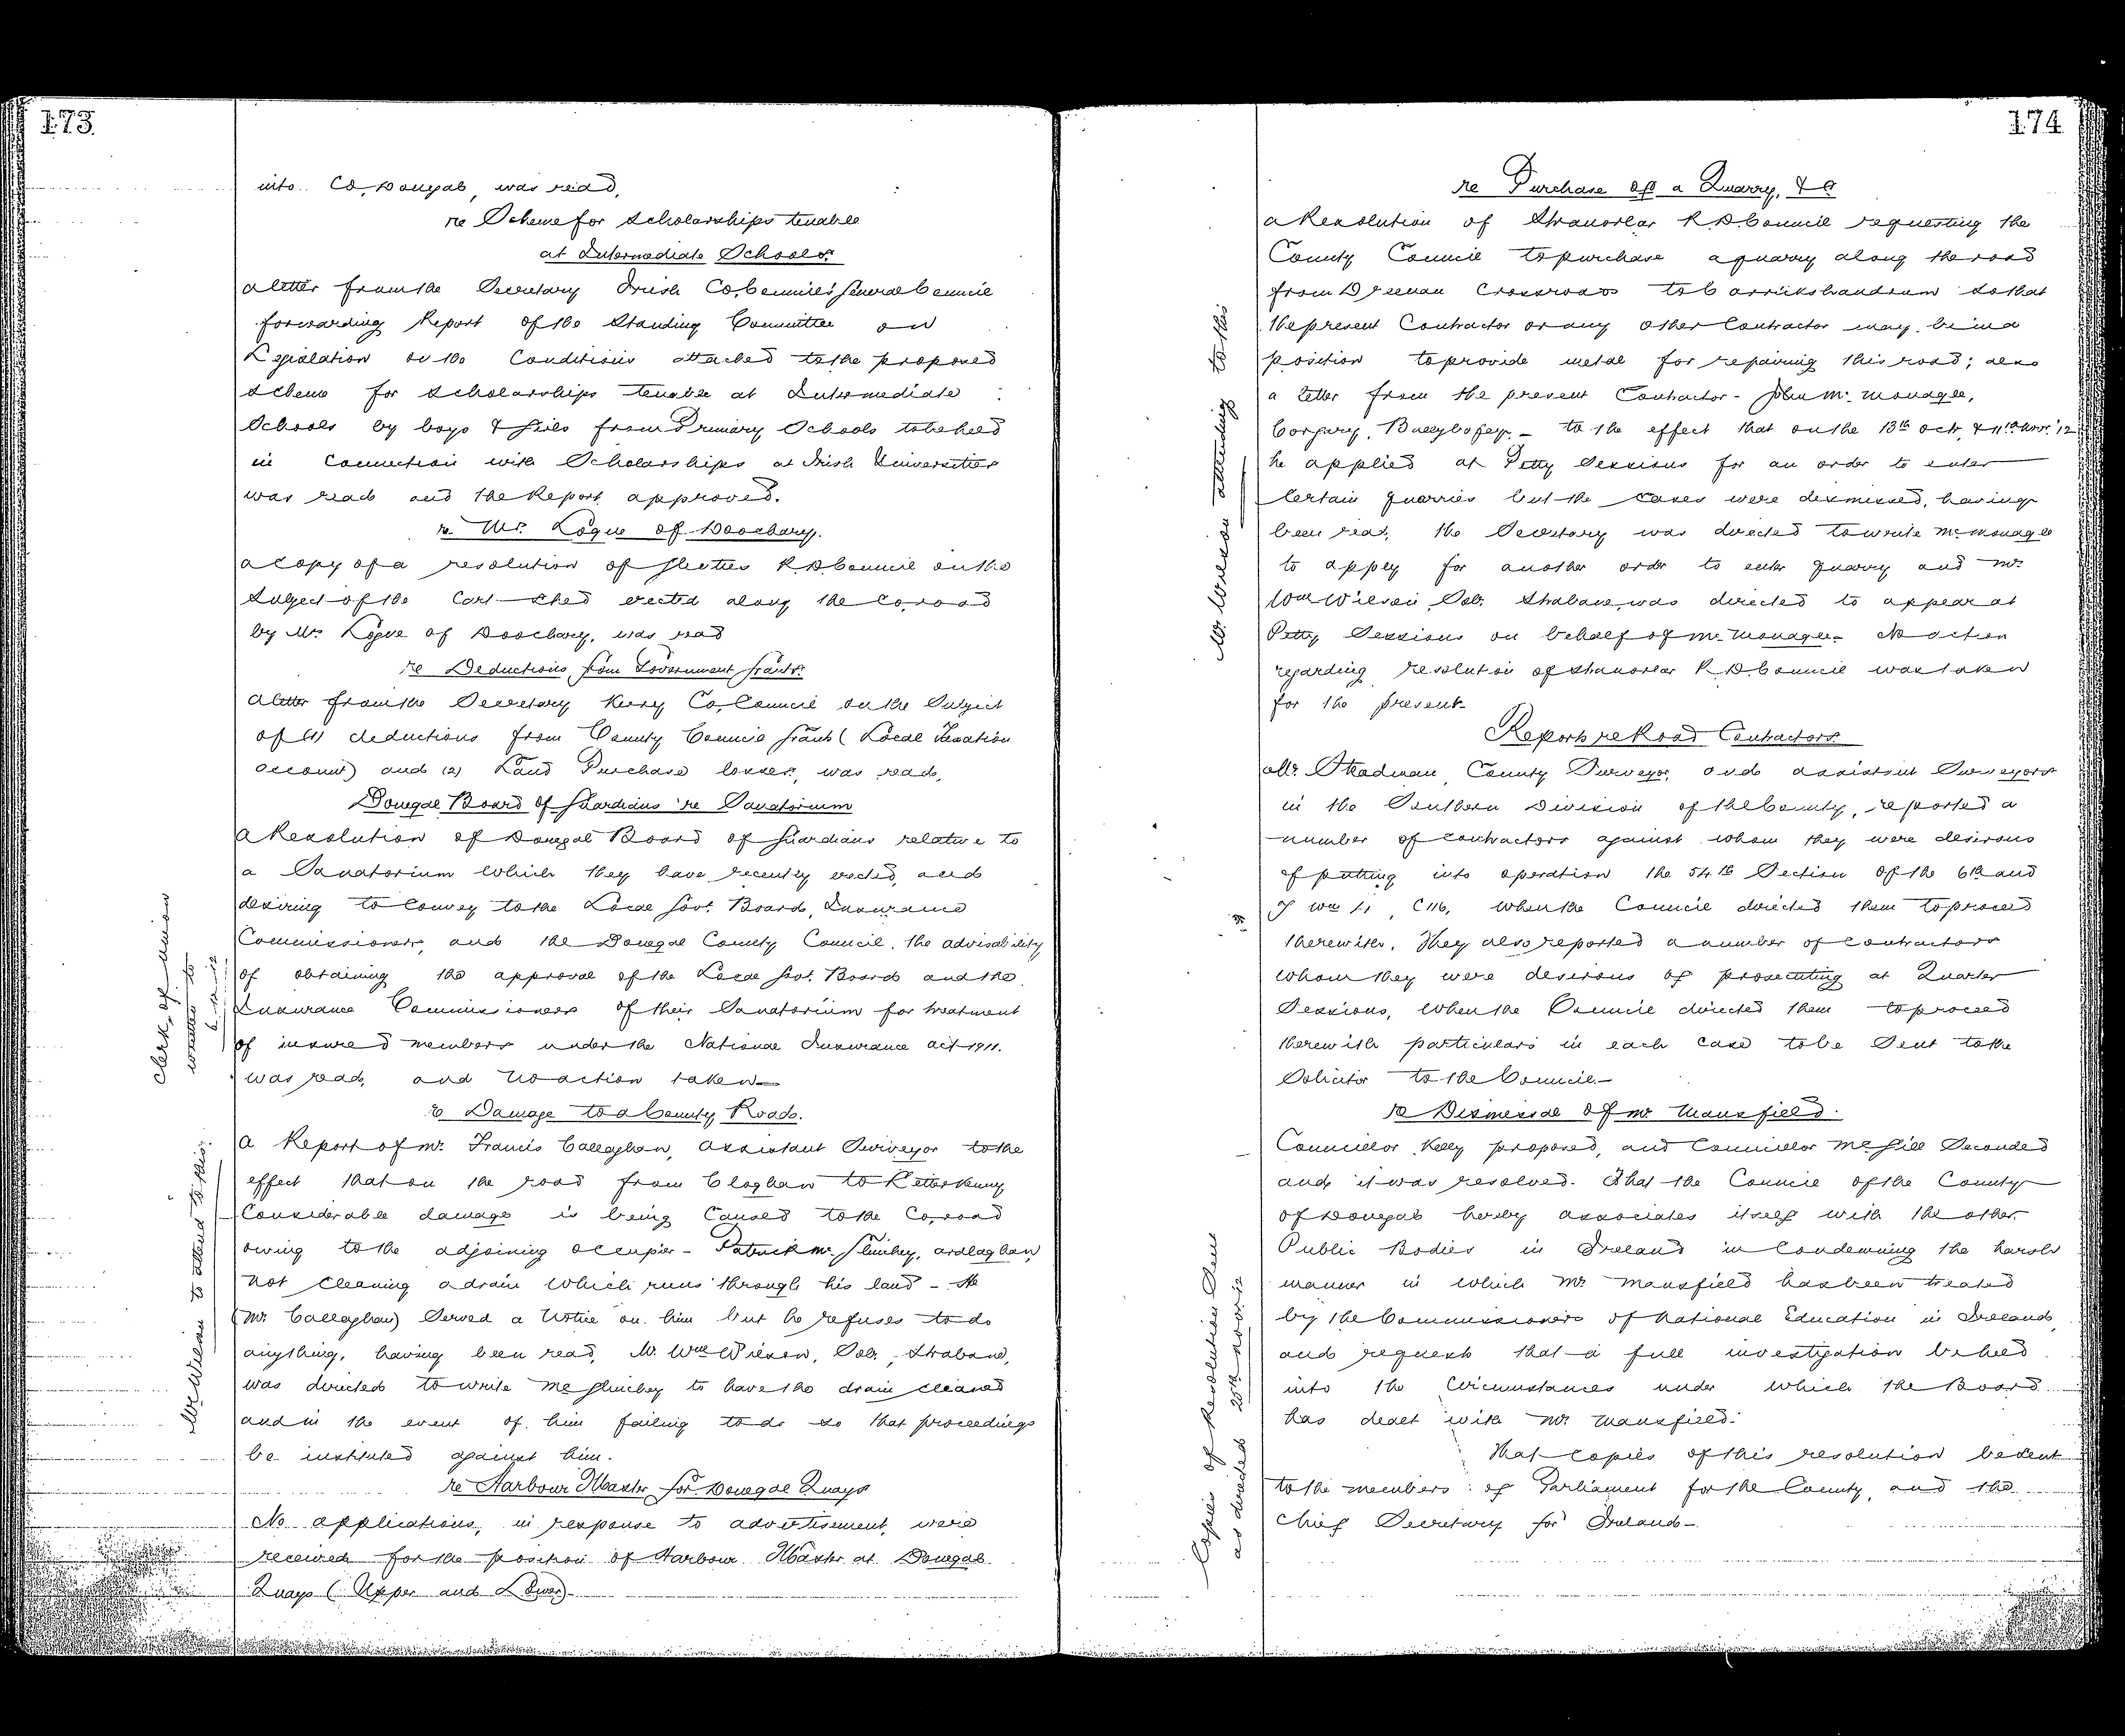 173
into Co, Donegal, was read,
re Scheme for Scholarships tenable
at Intermediate Schools.
a letter from the Secretary Irish Co, Councils' General Council
forwarding Report of the Standing Committee on
Legislation on the Conditions attached to the proposed
Scheme for Scholarships tenable at Intermediate
Schools by boys & Girls from Primary Schools to be held
in Connection with Scholarships at Irish Universities
was read and the Report approved.
re Mr. Logue of Doochary.
a copy of a resolution of Glenties R. D. Council on the
Subject of the Cart-shed erected along the Co, road
by Mr. Logue of Doochary, was read
re Deductions from Government Grants.
a letter from the Secretary Kerry Co, Council on the Subject
of (1) deductions from County Council Grants (Local Taxation
account) and (2) Land Purchase losses, was read,
Donegal Board of Guardians re Sanatorium
a Resolution of Donegal Board of Guardians relative to
a Sanatorium which they have recently erected, and
desiring to convey to the Local Govt. Board, Insurance
Commissioners, and the Donegal County Council, the advisability
of obtaining the approval of the Local Govt. Board and the
Insurance Commissioners of their Sanatorium for treatment
of insured members under the National Insurance act 1911.
was read, and no action taken—
Clerk of union
written to
6-12-12
re Damage to a County Road.
a Report of Mr. Francis Callaghan, assistant Surveyor to the
effect that on the road from Cloghan to Letterkenny
Considerable damage is being caused to the Co, road
owing to the adjoining occupier - Patrick Mc Glinchey, ardlaghan,
not cleaning a drain which runs through his land - He
(Mr. Callaghan) Served a Notice on him but he refuses to do
anything, having been read, Mr. Wm Wilson, Solr., Strabane,
was directed to write Mc Glinchey to have the drain cleaned
and in the event of him failing to do so that proceedings
be instituted against him.
Mr Wilson to attend to this.
re Harbour Master for Donegal Quays
No applications, in response to advertisement, were
received for the position of Harbour Master at Donegal
Quays (Upper and Lower).
174
re Purchase of a Quarry, &c
a Resolution of Stranorlar R. D. Council requesting the
County Council to purchase a quarry along the road
from Dreenan Crossroads to Carrickshandrum so that
the present Contractor or any other Contractor may be in a
position to provide metal for repairing this road; also
a letter from the present Contractor - John Mc Monagle,
Corgary, Ballybofey - to the effect that on the 13th Octr, & 11th Novr. '12
he applied at Petty Sessions for an order to enter
Certain quarries but the cases were dismissed, having
been read, the Secretary was directed to write Mc Monagle
to apply for another order to enter quarry and Mr.
Wm Wilson Solr. Strabane, was directed to appear at
Petty Sessions on behalf of Mc Monagle. No action
regarding resolution of Stranorlar R. D. Council was taken
for the present.
Mr. Wilson attending to this
Reports re Road Contractors.
Mr. Stadman, County Surveyor, and assistant Surveyors
in the Southern Division of the County, reported a
number of contractors against whom they were desirous
of putting into operation the 54th Section of the 6th and
7 Wm IV, C 116, when the Council directed them to proceed
therewith. They also reported a number of contractors
whom they were desirous of prosecuting at Quarter
Sessions, when the Council directed them to proceed
therewith particulars in each case to be Sent to the
Solicitor to the Council—
re Dismissal of Mr Mansfield.
Councillor Kelly proposed, and Councillor Mc Gill Seconded
and it was resolved. That the Council of the County
of Donegal hereby associates itself with the other
Public Bodies in Ireland in condemning the harsh
manner in which Mr Mansfield has been treated
by the Commissioners of National Education in Ireland,
and request that a full investigation be held
into the Circumstances under which the Board
has dealt with Mr Mansfield.
That copies of this resolution be sent
to the members of Parliament for the County, and the
Chief Secretary for Ireland—
Copies of Resolution Sent
as directed 25th Nov. 12